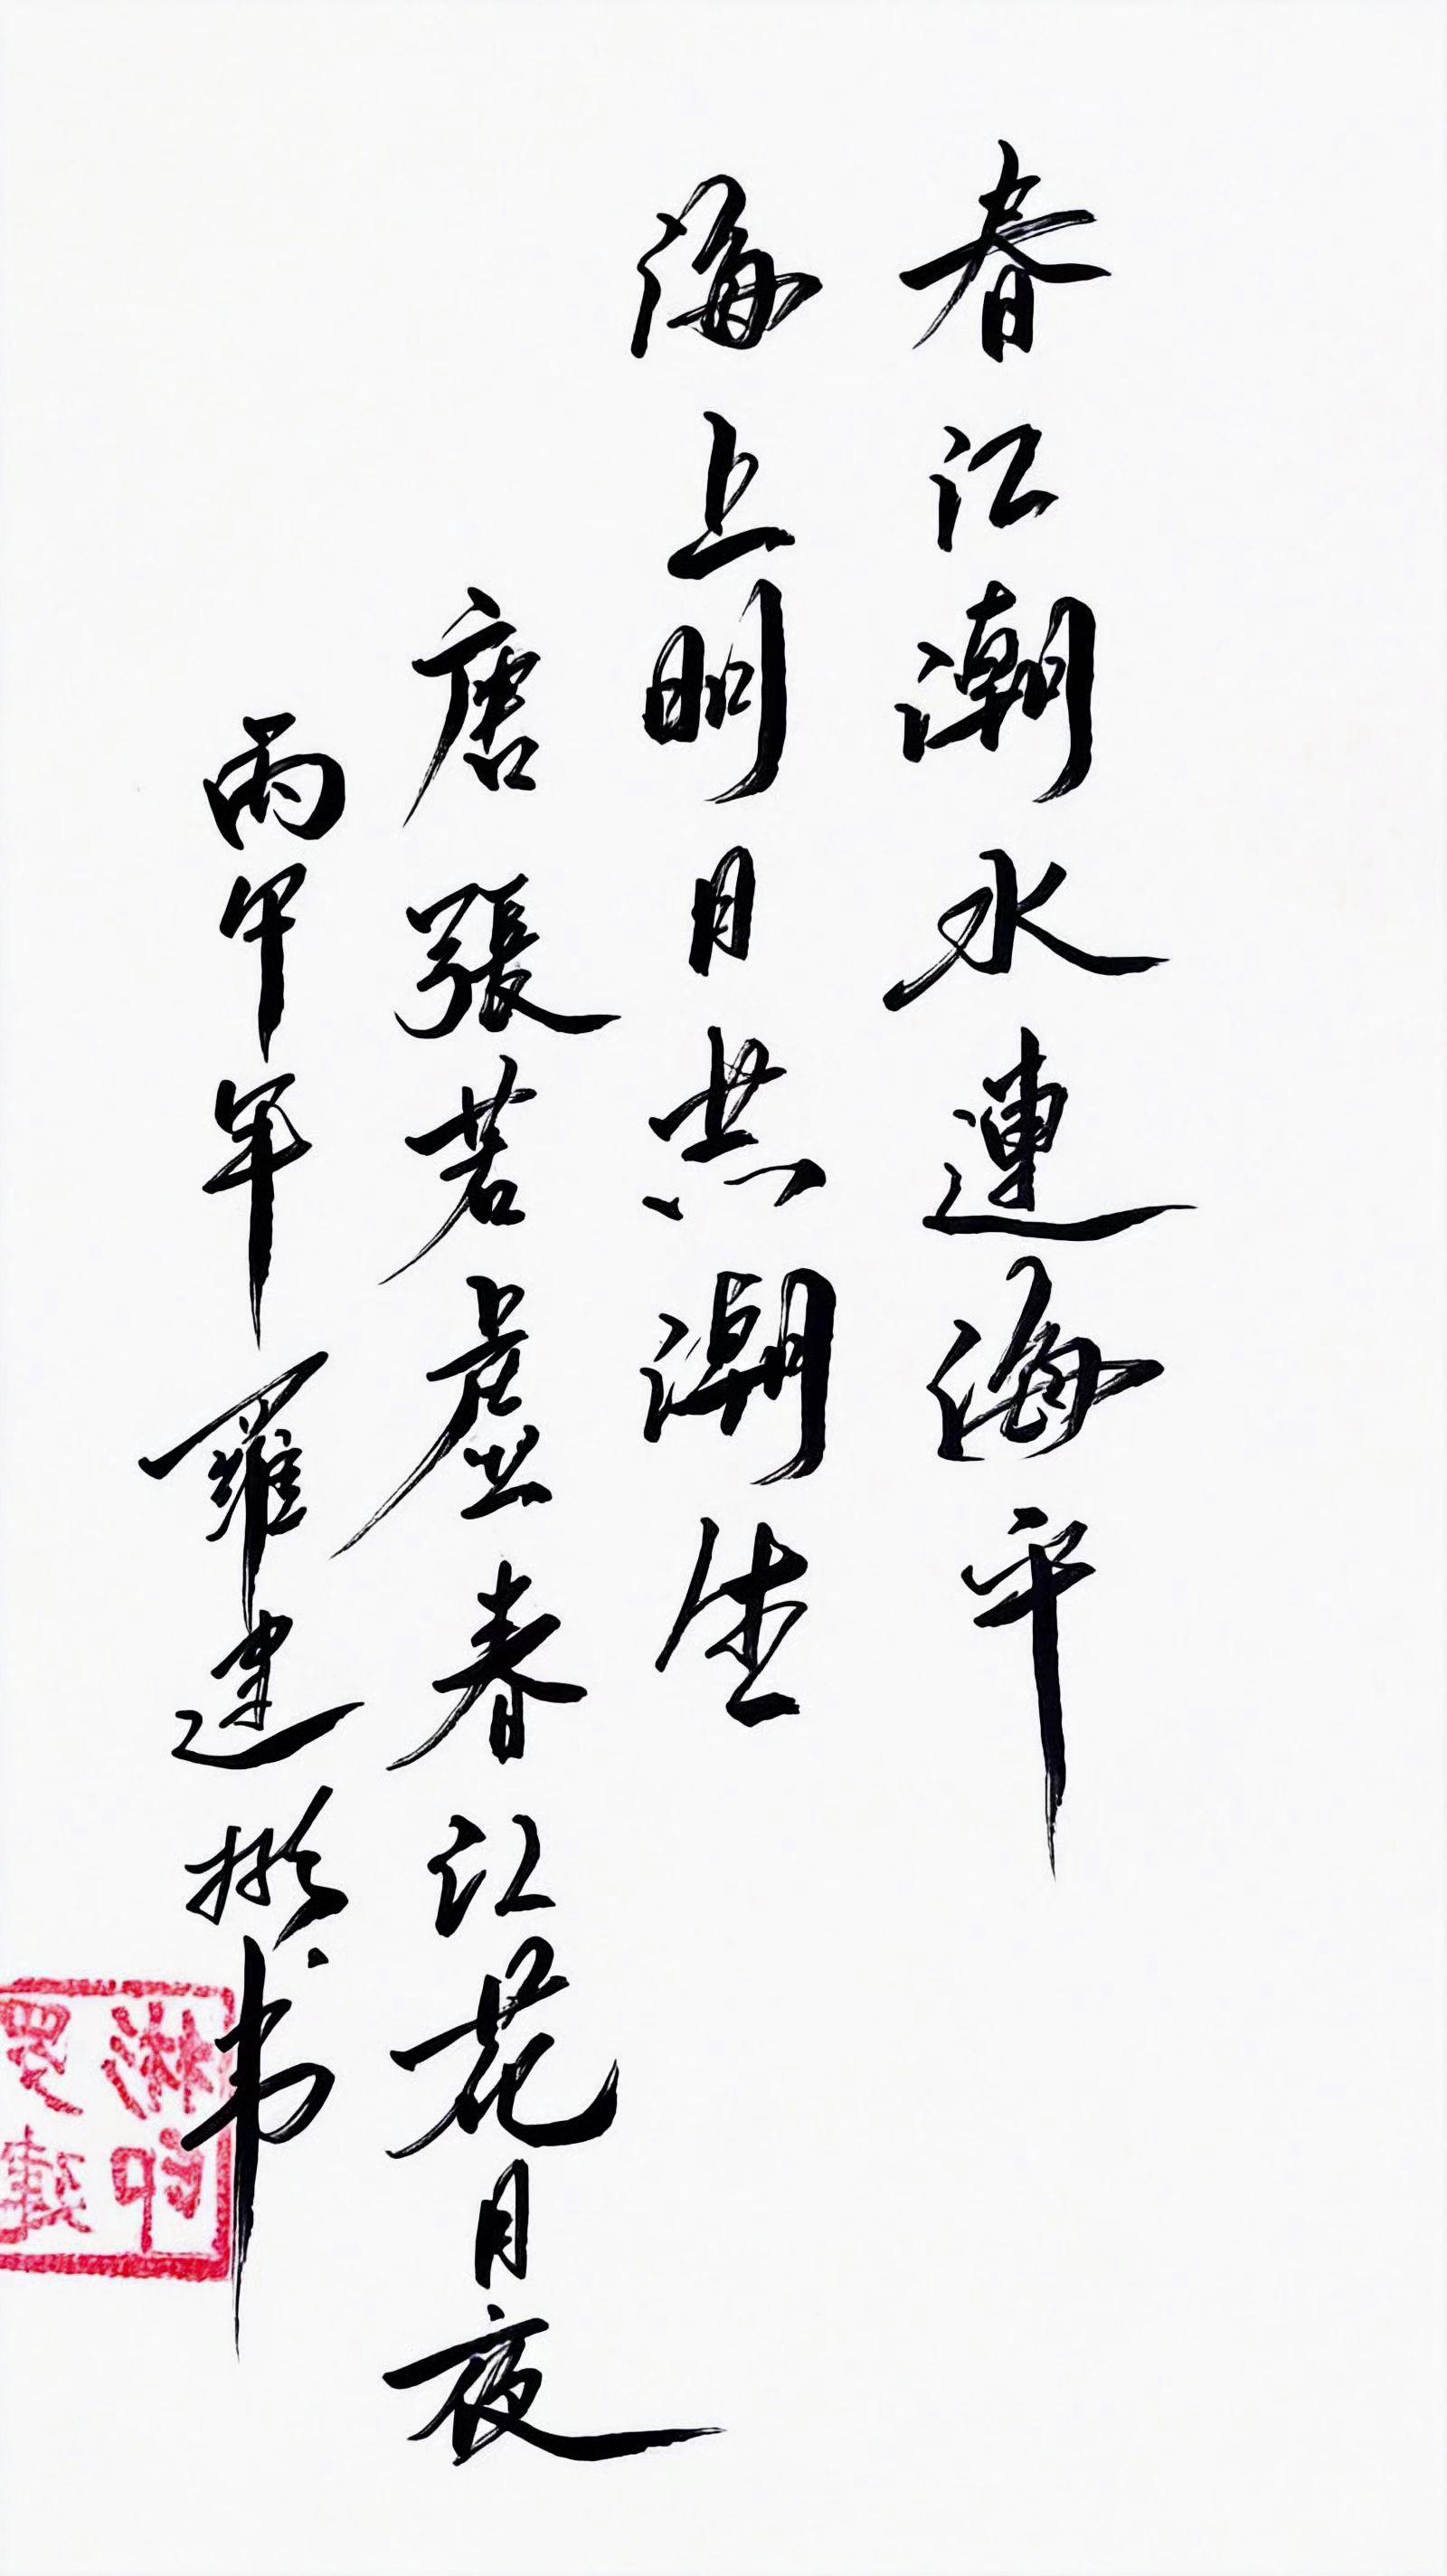 春江潮水連海平
海上明月共潮生
唐張若虛春江花月夜
丙午年羅建彬书